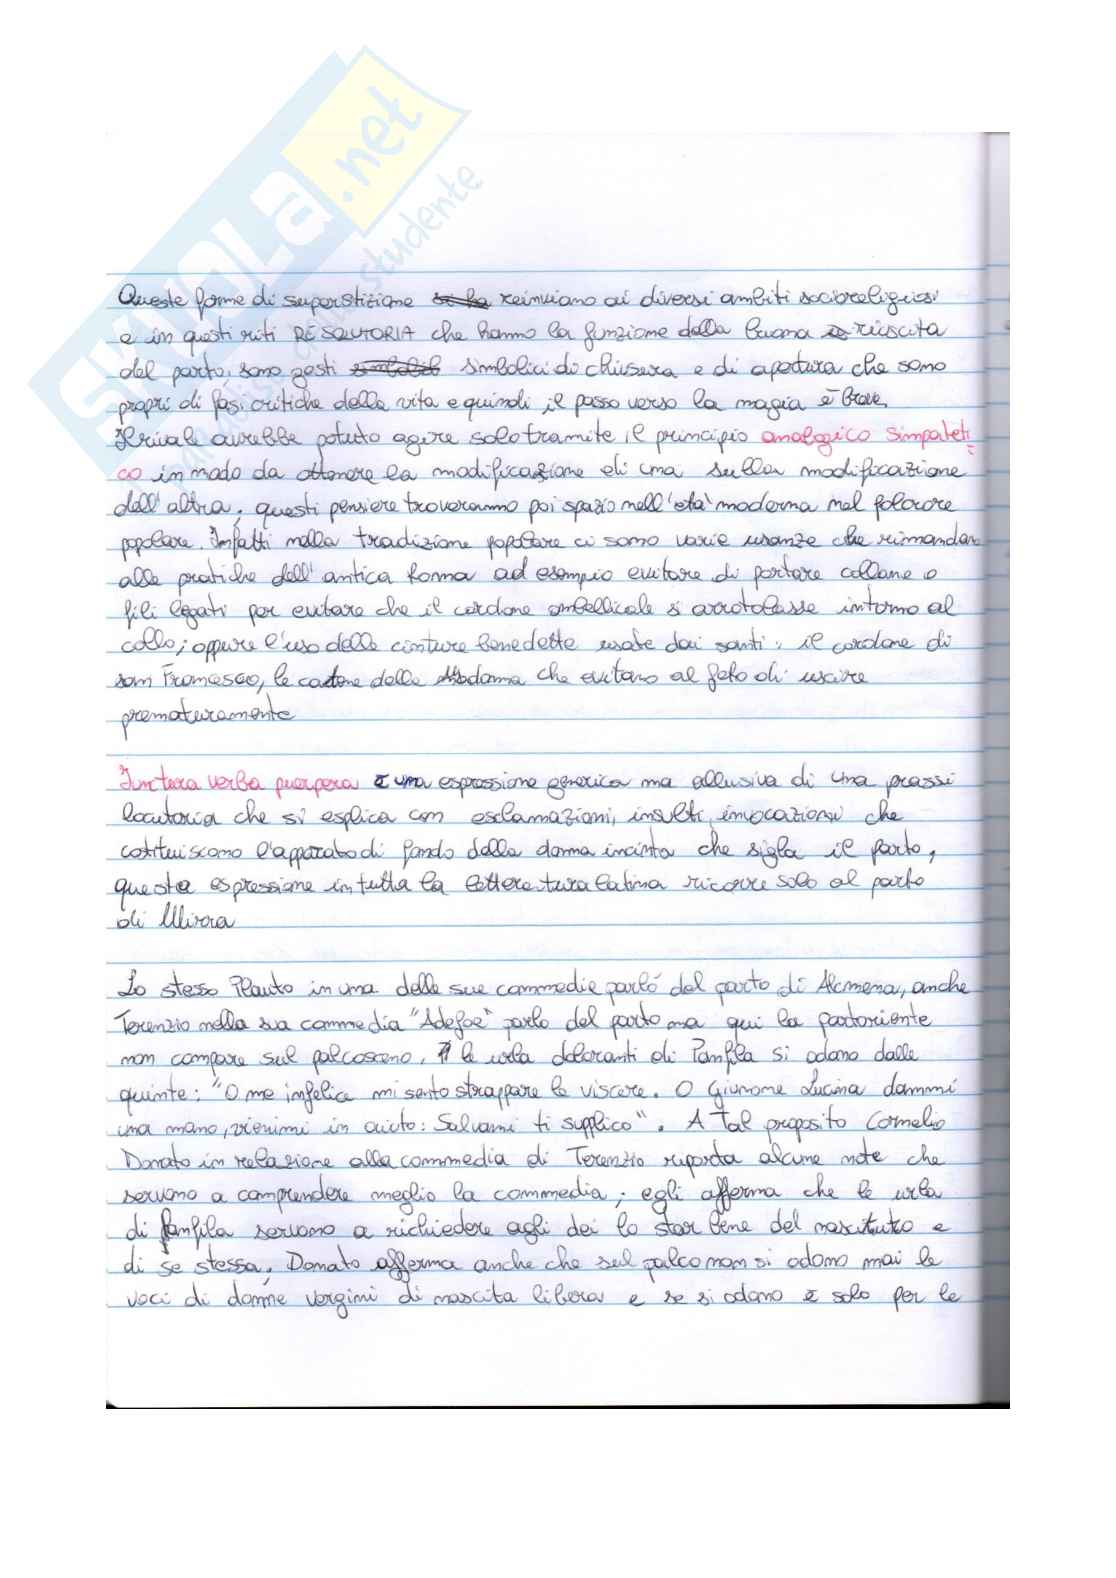 SKUOLA.net
paradiso dello studente
Queste forme di superstizione se ha reinviano ai diversi ambiti socioreligiosi
e in questi riti RESOLUTORIA che hanno la funzione della buona riuscita
del parto, sono gesti simbolici di chiusura e di apertura che sono
propri di fasi critiche della vita e quindi il passo verso la magia è breve.
Il rivale avrebbe potuto agire solo tramite il principio analogico simpateti
co in modo da ottenere la modificazione di una sulla modificazione
dell'altra, questi pensiere troveranno poi spazio nell'età moderna nel folcrore
popolare. Infatti nella tradizione popolare ci sono varie usanze che rimandano
alle pratiche dell'antica Roma ad esempio evitare di portare collane o
fili legati per evitare che il cordone ombellicale si arrotolasse intorno al
collo; oppure l'uso delle cinture benedette usate dai santi: il cordone di
san Francesco, le catene della Madonna che evitano al feto di uscire
prematuramente
Inctera verba puerpera è una espressione generica ma allusiva di una prassi
locutoria che si esplica con esclamazioni, insulti, invocazioni che
costituiscono l'apparato di fondo della donna incinta che sigla il parto,
questa espressione in tutta la letteratura latina ricorre solo al parto
di Mirra
Lo stesso Plauto in una delle sue commedie parlò del parto di Alcmena, anche
Terenzio nella sua commedia "Adefoe" parlo del parto ma qui la partoriente
non compare sul palcosceno, le urla doloranti di Panfila si odono dalle
quinte: "O me infelice mi sento strappare le viscere. O Giunone Lucina dammi
una mano, vienimi in aiuto: Salvami ti supplico". A tal proposito Cornelio
Donato in relazione alla commedia di Terenzio riporta alcune note che
servono a comprendere meglio la commedia; egli afferma che le urla
di Panfila servono a richiedere agli dei lo star bene del nascituro e
di se stessa. Donato afferma anche che sul palco non si odono mai le
voci di donne vergini di nascita libera e se si odono è solo per le